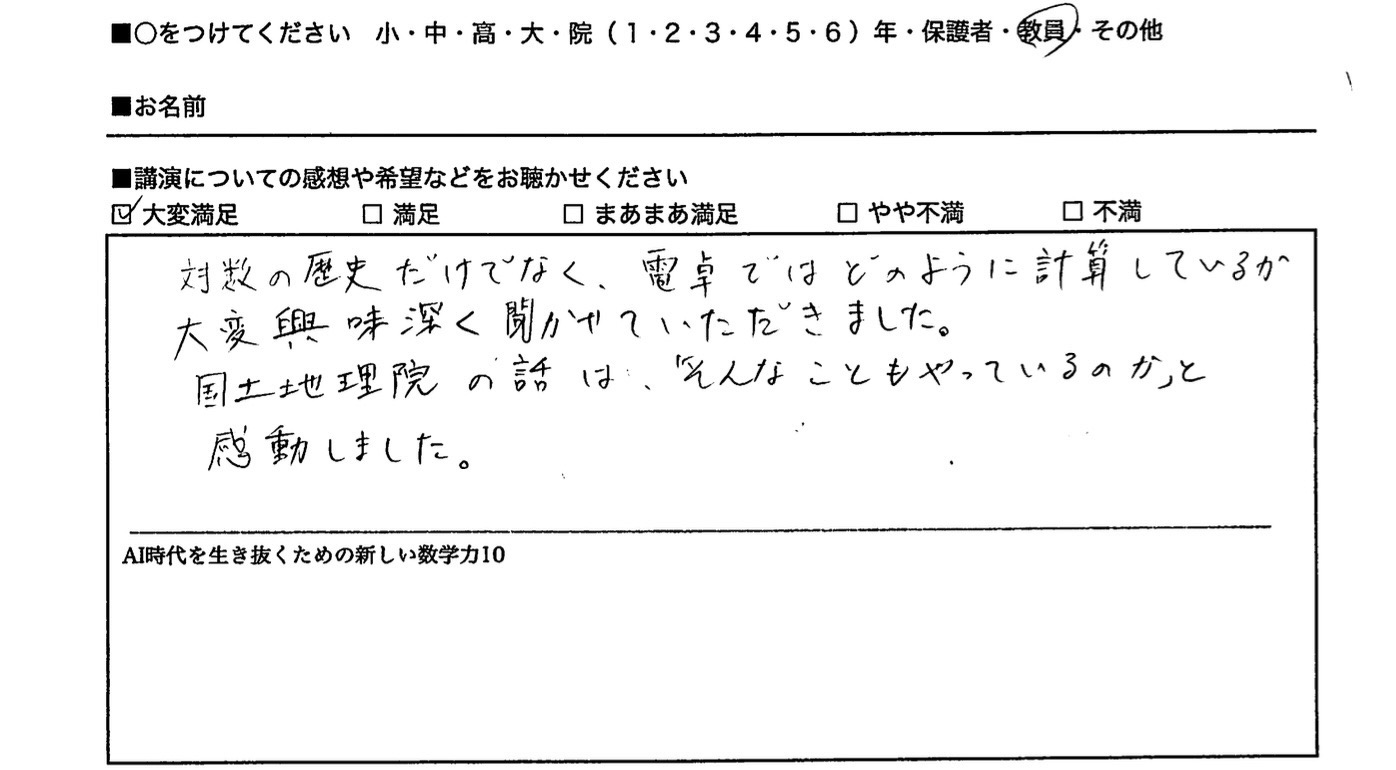 ■○をつけてください 小・中・高・大・院（1・2・3・4・5・6）年・保護者・教員・その他
■お名前
■講演についての感想や希望などをお聴かせください
☑ 大変満足 □ 満足 □ まあまあ満足 □ やや不満 □ 不満
対数の歴史だけでなく、電卓ではどのように計算しているか
大変興味深く聞かせていただきました。
国土地理院の話は、「そんなこともやっているのか」と
感動しました。
AI時代を生き抜くための新しい数学力10